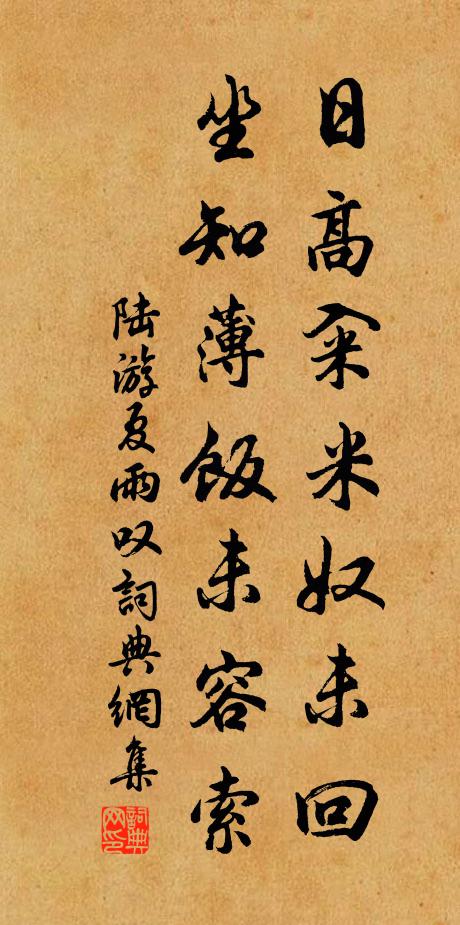 日高籴米奴未回
坐知薄飯未容索
陆游夏雨叹詞典網集
詞典网印